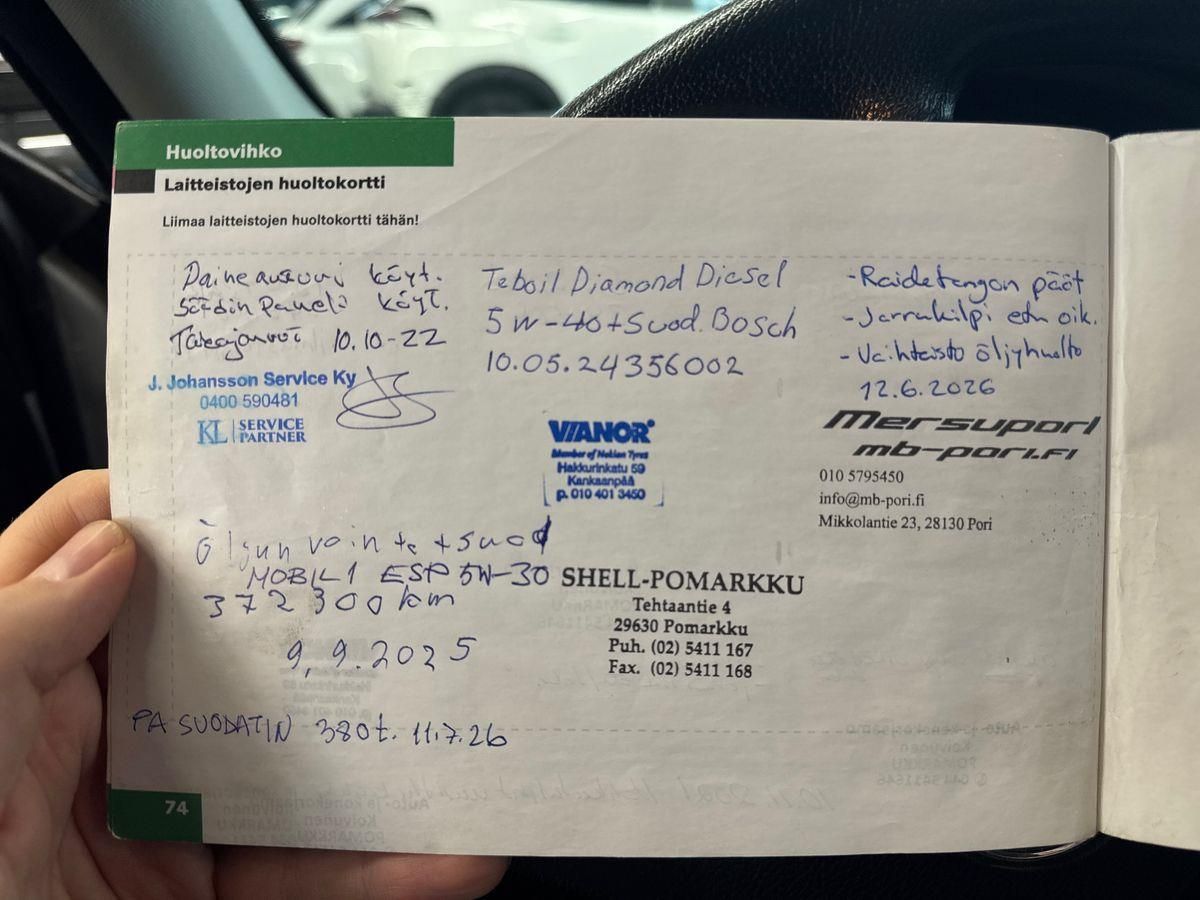 Huoltovihko
Laitteistojen huoltokortti
Liimaa laitteistojen huoltokortti tähän!
Paineanturi käyt.
Säädin paneli käyt.
Takajarrut 10.10-22
J. Johansson Service Ky
0400 590481
KL SERVICE PARTNER
Teboil Diamond Diesel
5W-40+Suod. Bosch
10.05.24 356002
VIANOR
Member of Nokian Tyres
Hakkurinkatu 59
Kankaanpää
p. 010 401 3450
-Raidetangon päät
-Jarrukilpi etu oik.
-Vaihteisto öljyhuolto
12.6.2026
Mersupori
mb-pori.fi
010 5795450
info@mb-pori.fi
Mikkolantie 23, 28130 Pori
Öljyn vainto + suod
MOBIL1 ESP 5W-30
372 300km
9.9.2025
SHELL-POMARKKU
Tehtaantie 4
29630 Pomarkku
Puh. (02) 5411 167
Fax. (02) 5411 168
PA SUODATIN 380t. 11.7.26
74